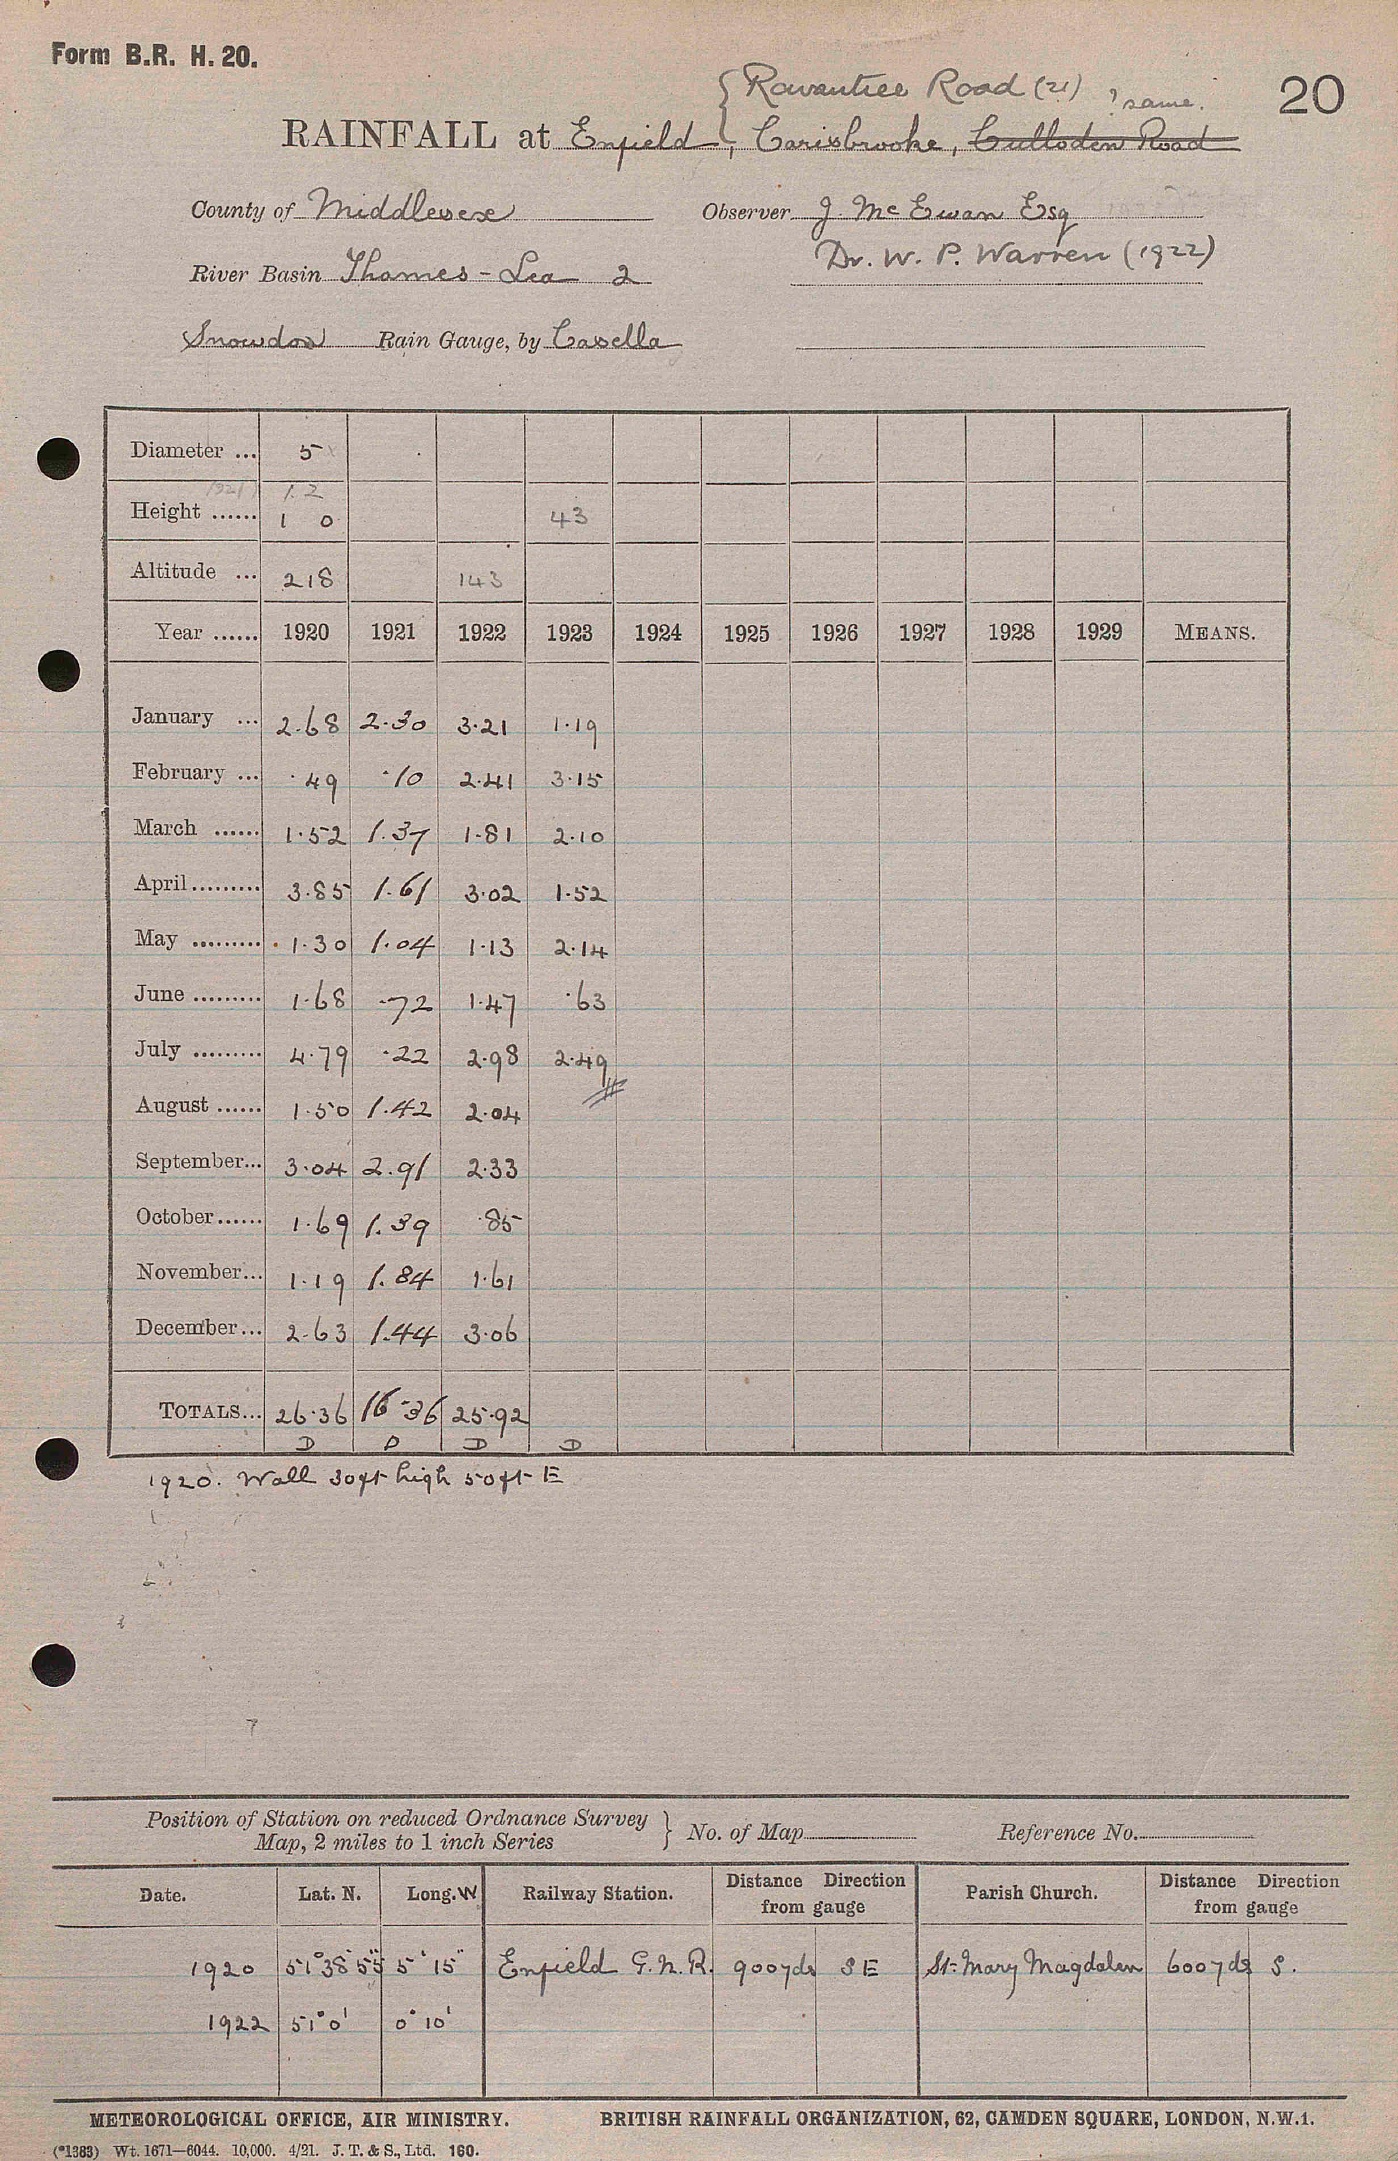 Form B.R. H. 20.
20
{ Rowantree Road (21) ? same.
RAINFALL at Enfield, Carisbrooke, Culloden Road
County of Middlesex Observer J. McEwan Esq
Dr. W. P. Warren (1922)
River Basin Thames - Lea 2
Snowdon Rain Gauge, by Casella
Diameter ... 5
1921) 1.2
Height ...... 1 0 43
Altitude ... 218 143
Year ...... 1920 1921 1922 1923 1924 1925 1926 1927 1928 1929 MEANS.
January ... 2.68 2.30 3.21 1.19
February ... .49 .10 2.41 3.15
March ...... 1.52 1.37 1.81 2.10
April ......... 3.85 1.61 3.02 1.52
May ......... 1.30 1.04 1.13 2.14
June ......... 1.68 .72 1.47 .63
July ......... 4.79 .22 2.98 2.49
August ...... 1.50 1.42 2.04
September... 3.04 2.91 2.33
October ...... 1.69 1.39 .85
November... 1.19 1.84 1.61
December... 2.63 1.44 3.06
TOTALS... 26.36 16.36 25.92
D D D D
1920. Wall 30ft high 50ft E
7
Position of Station on reduced Ordnance Survey
Map, 2 miles to 1 inch Series } No. of Map Reference No.
Date. Lat. N. Long. W Railway Station. Distance Direction from gauge Parish Church. Distance Direction from gauge
1920 51° 38' 55" 5' 15" Enfield G.N.R. 900yds SE St. Mary Magdalen 600yds S.
1922 51° 0' 0° 10'
METEOROLOGICAL OFFICE, AIR MINISTRY. BRITISH RAINFALL ORGANIZATION, 62, CAMDEN SQUARE, LONDON, N.W.1.
(*1383) Wt. 1671—6044. 10,000. 4/21. J. T. & S., Ltd. 160.